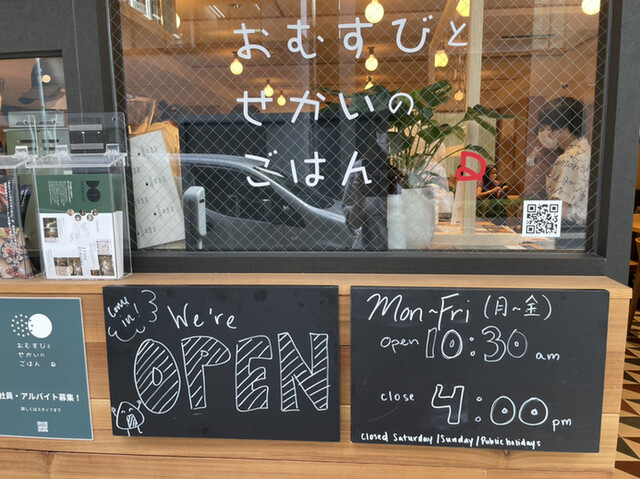 おむすびと
せかいの
ごはん
おむすびと
せかいの
ごはん
社員・アルバイト募集!
詳しくはスタッフまで
Come in!
We're
OPEN
Mon~Fri (月~金)
open 10:30 am
close 4:00 pm
Closed Saturday/Sunday/Public holidays